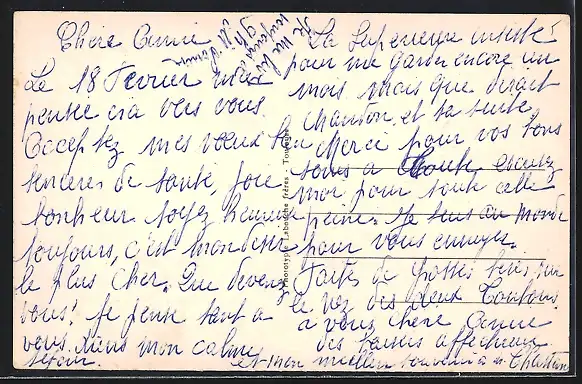 Chère Amie
Le 18 Février ma
pensée ira vers vous.
Acceptez mes voeux bien
sincères de santé, joie
bonheur soyez heureuse
toujours, c'est mon désir
le plus cher. Que devenez
vous! Je pense tant à
vous dans mon calme
séjour.
La Supérieure insiste
pour me garder encore un
mois mais que dirait
et sa suite.
Merci pour vos bons
à toute
moi pour toute cette
peine. Je suis au monde
pour vous ennuyer.
Faites de grosses bises sur
le nez des deux Toutous
à vous chère Amie
des baisers affectueux
et mon meilleur souvenir à M. Christian
Phototype Labouche frères - Toulouse